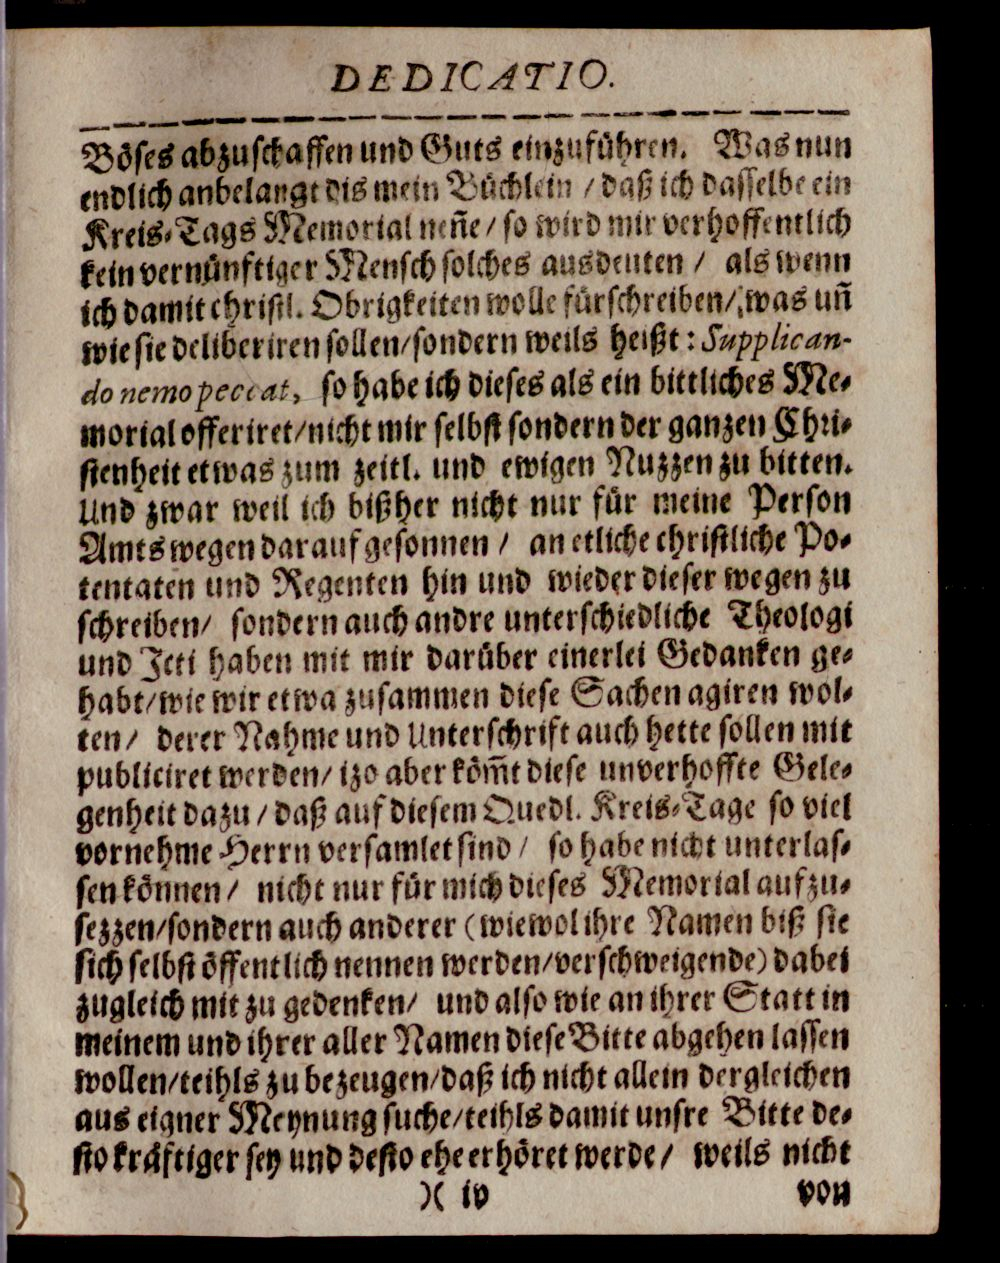 DEDICATIO.
Böses abzuschaffen und Guts einzuführen. Was nun
endlich anbelangt dis mein Büchlein / daß ich dasselbe ein
Kreis-Tags Memorial neñe / so wird mir verhoffentlich
kein vernünftiger Mensch solches ausdeuten / als wenn
ich damit christl. Obrigkeiten wolle fürschreiben / was uñ
wie sie deliberiren sollen / sondern weils heißt: Supplican-
do nemo peccat, so habe ich dieses als ein bittliches Me-
morial offeriret / nicht mir selbst sondern der ganzen Chri-
stenheit etwas zum zeitl. und ewigen Nuzzen zu bitten.
Und zwar weil ich bißher nicht nur für meine Person
Amts wegen darauf gesonnen / an etliche christliche Po-
tentaten und Regenten hin und wieder dieser wegen zu
schreiben / sondern auch andre unterschiedliche Theologi
und Jcti haben mit mir darüber einerlei Gedanken ge-
habt / wie wir etwa zusammen diese Sachen agiren wol-
ten / derer Nahme und Unterschrift auch hette sollen mit
publiciret werden / izo aber köm̃t diese unverhoffte Gele-
genheit dazu / daß auf diesem Quedl. Kreis-Tage so viel
vornehme Herrn versamlet sind / so habe nicht unterlas-
sen können / nicht nur für mich dieses Memorial aufzu-
sezzen / sondern auch anderer (wiewol ihre Namen biß sie
sich selbst öffentlich nennen werden / verschweigende) dabei
zugleich mit zu gedenken / und also wie an ihrer Statt in
meinem und ihrer aller Namen diese Bitte abgehen lassen
wollen / teihls zu bezeugen / daß ich nicht allein dergleichen
aus eigner Meynung suche / teihls damit unsre Bitte de-
sto kräftiger sey und desto ehe erhöret werde / weils nicht
)( iv von